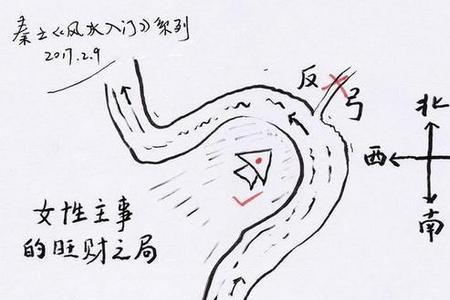 秦之《风水入门》系列
2017.2.9
反
弓
北
西
南
女性主事
的旺财之局